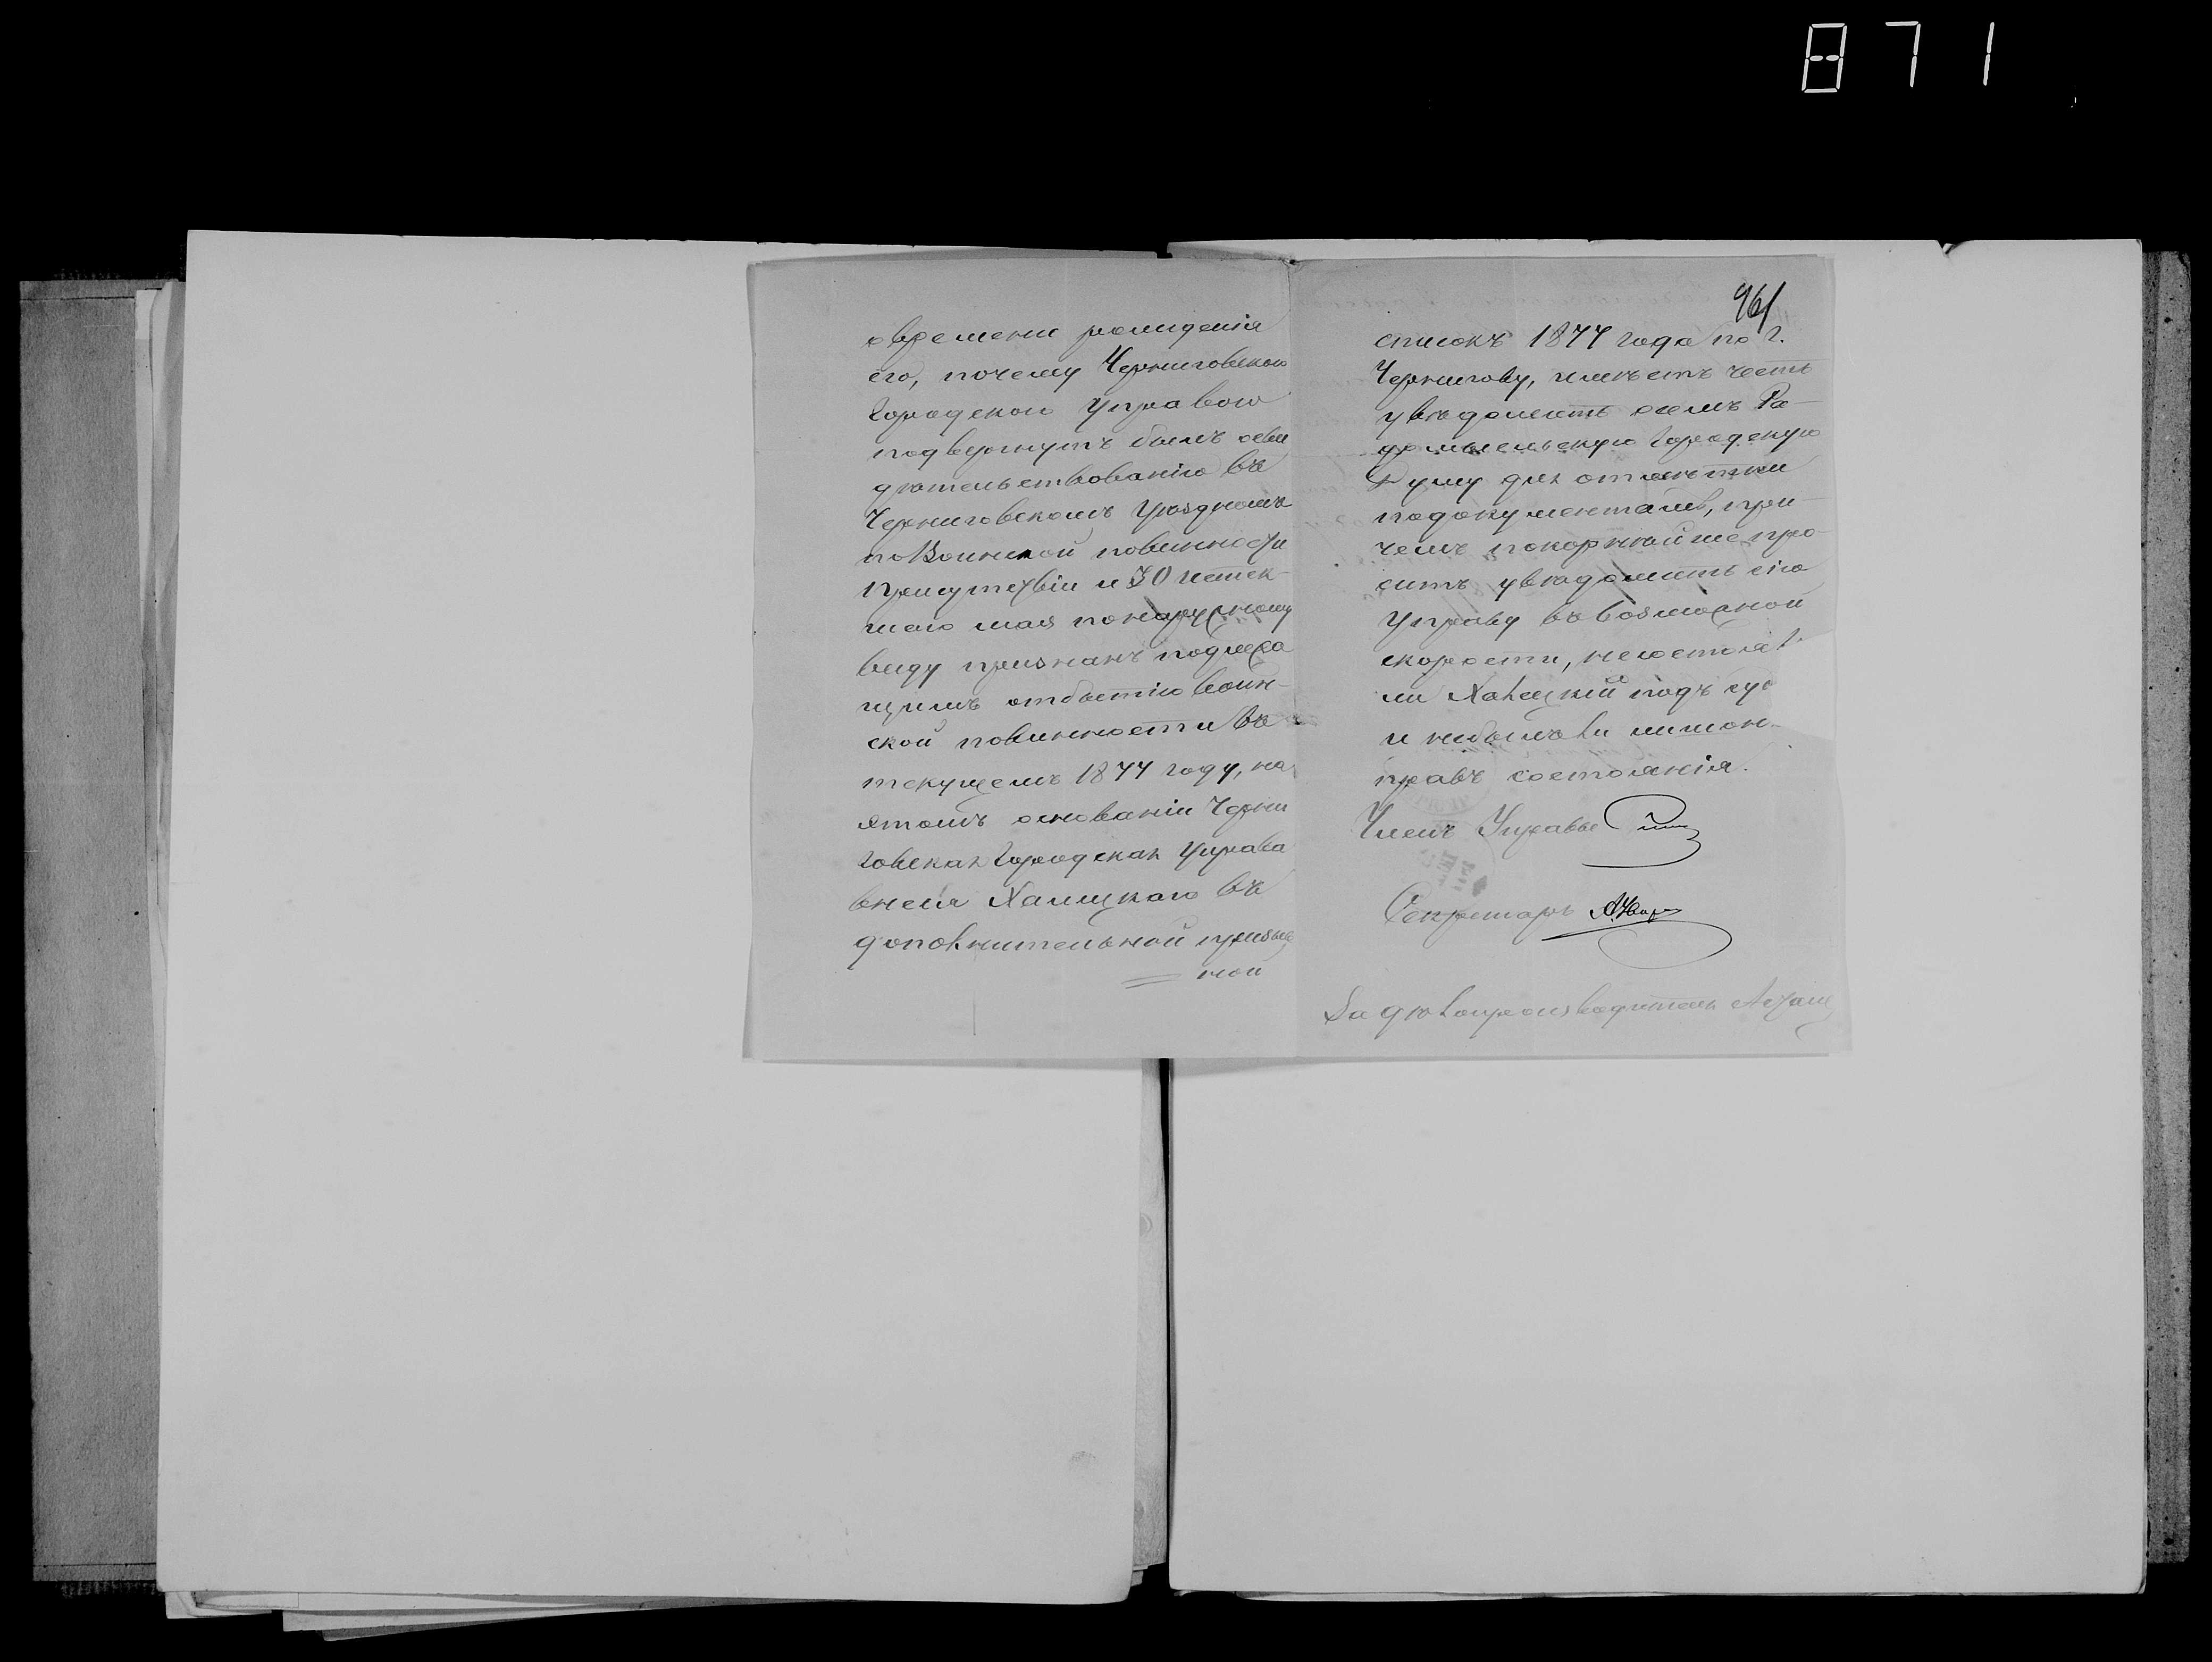 871
о времени рожденія
его, почему Черниговскою
Городскою Управою
подвергнутъ былъ осви
дѣтельствованію въ
Черниговскомъ Уѣздномъ
по Воинской повинности
Присутствіи и 30 истек-
шаго мая по наружному
виду признанъ подлежа
щимъ отбытію воин-
ской повинности въ
текущемъ 1877 году, на
этомъ основаніи Черни
говская Городская Управа
внеся Халецкаго въ
дополнительной призыв
ной
961
списокъ 1877 года по г.
Чернигову, имѣетъ честь
увѣдомить о семъ Ра-
домысльскую Городскую
Думу для отмѣтки
по документамъ, при
чемъ покорнѣйше про-
ситъ увѣдомить сію
Управу въ возможной
скорости, не состоял
ли Халецкій подъ су
и не былъ ли лишон
правъ состоянія.
Членъ Управы
Секретарь
За дѣлопроизводителя